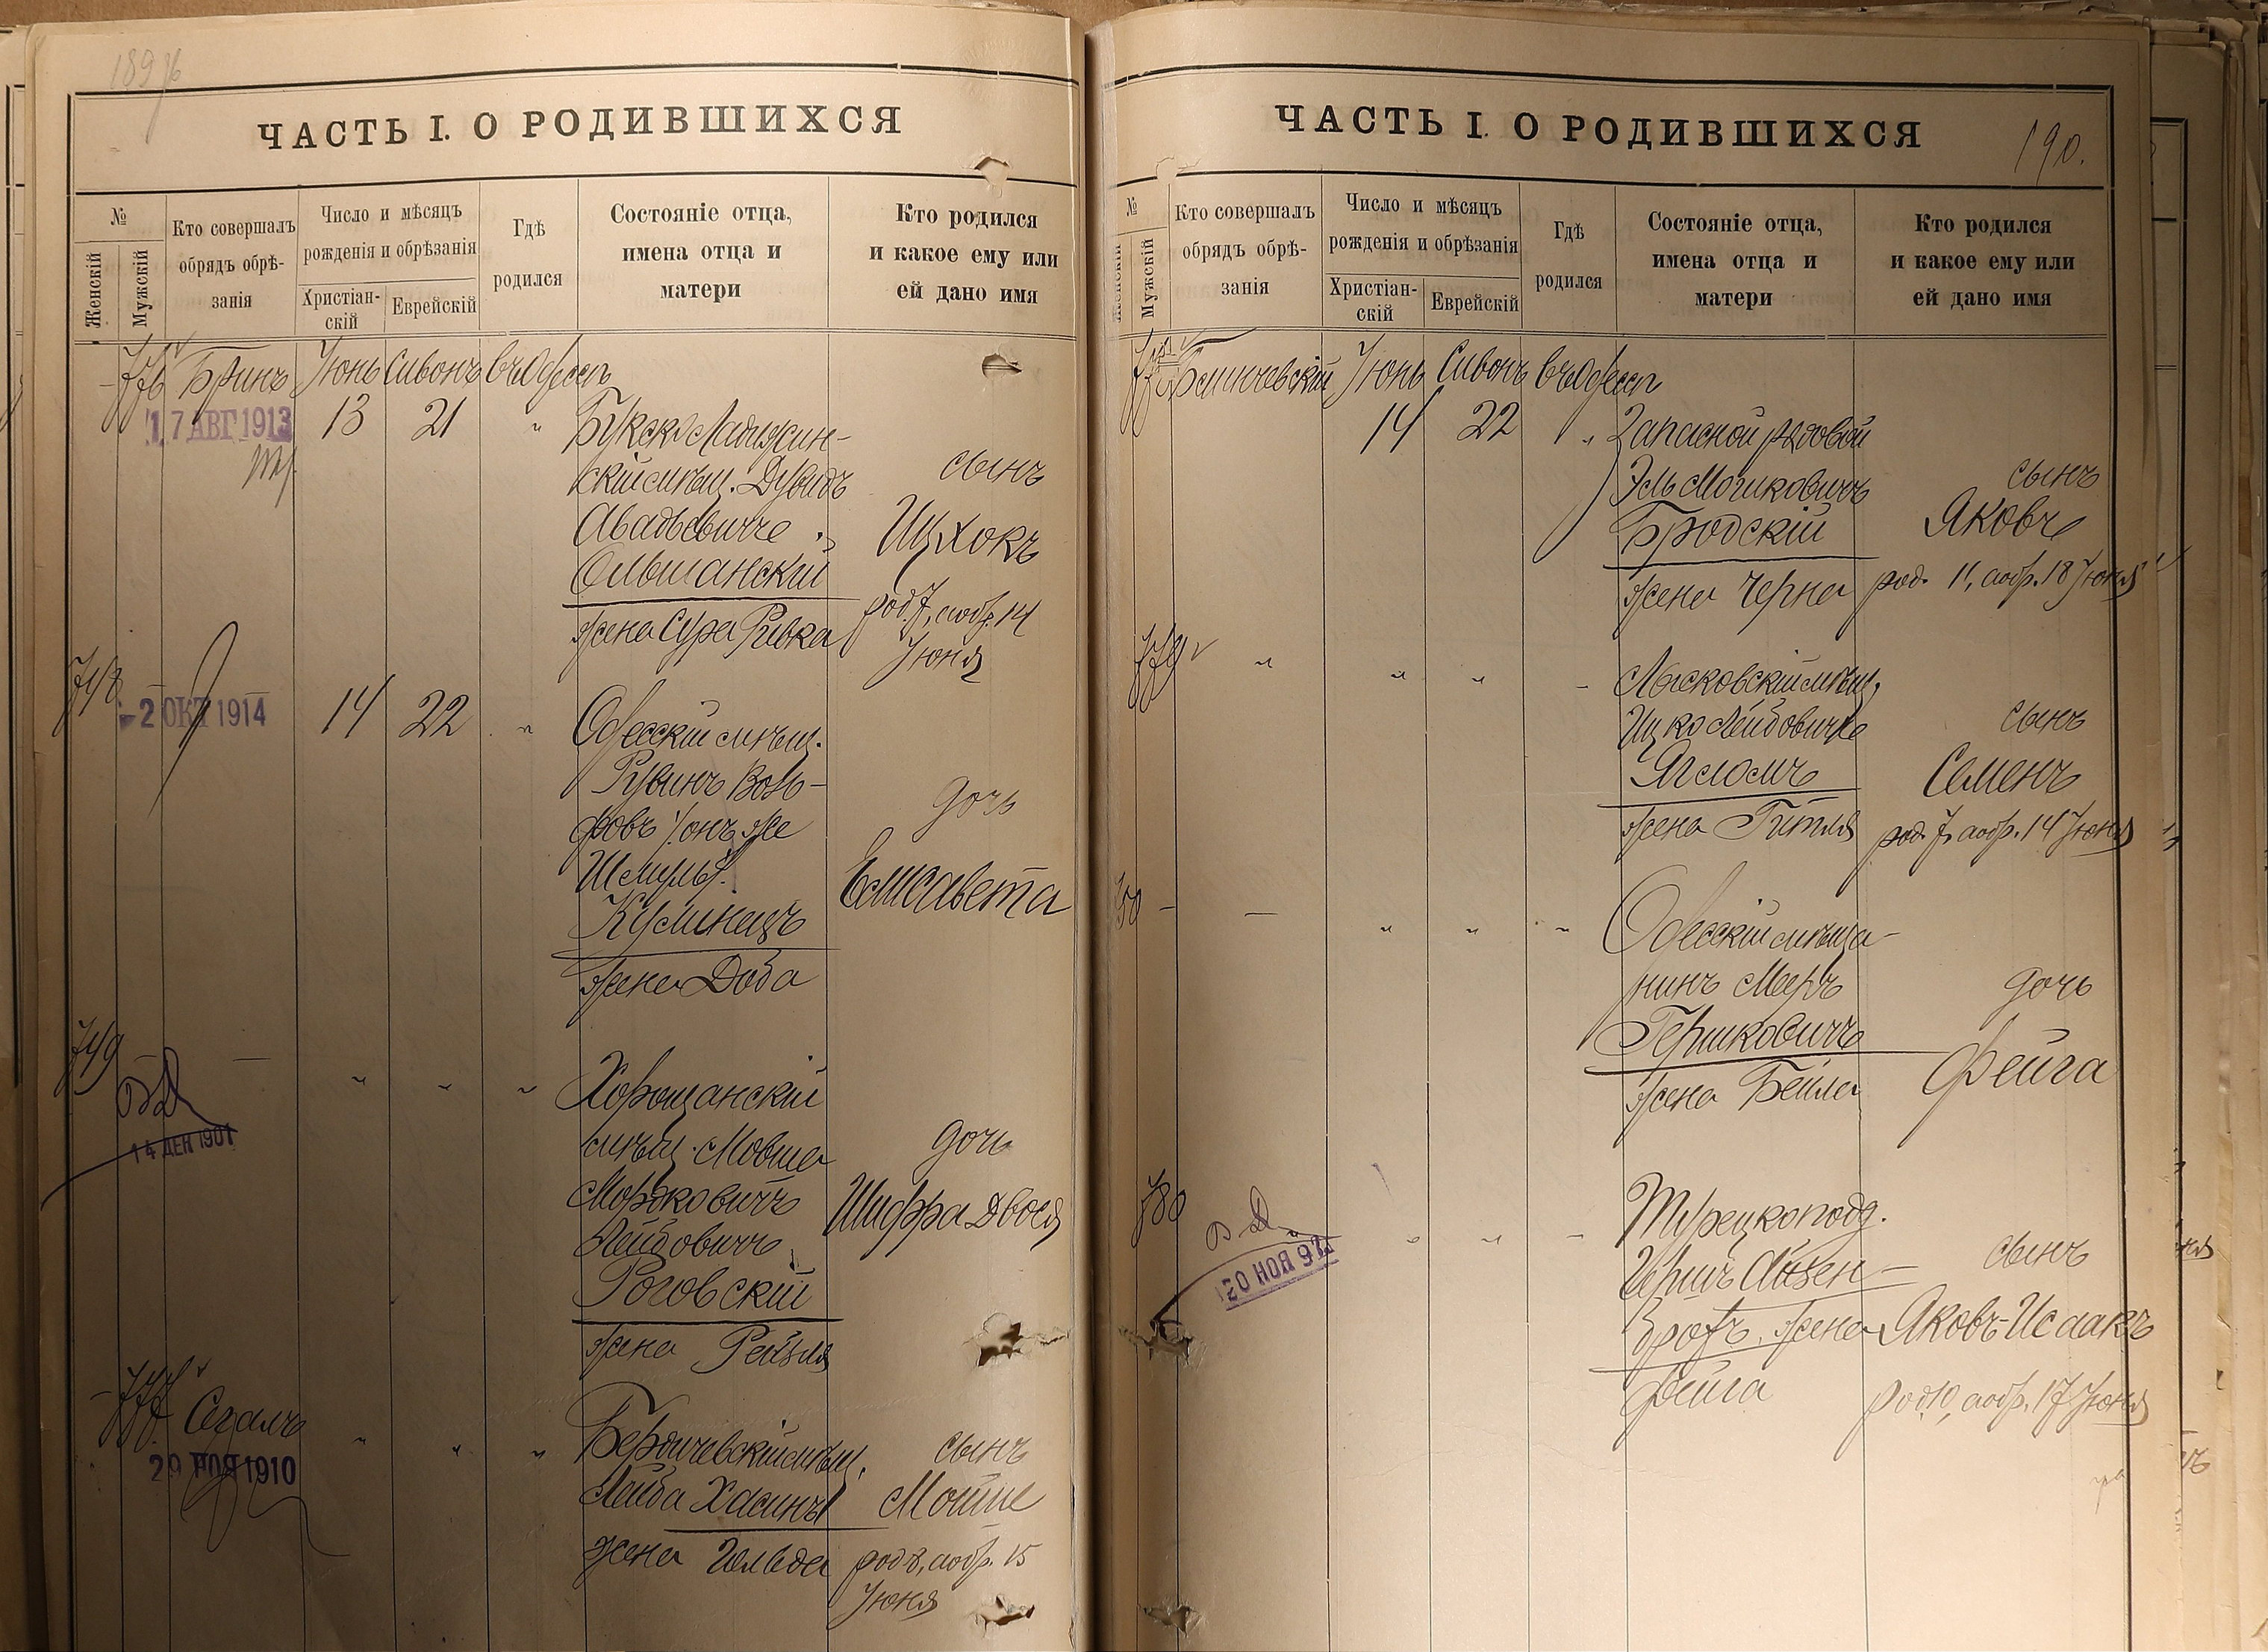 189
ЧАСТЬ I. О РОДИВШИХСЯ
№
Женскій
Мужскій
Кто совершалъ
обрядъ обрѣ-
занія
Число и мѣсяцъ
рожденія и обрѣзанія
Христіан-
скій
Еврейскій
Гдѣ
родился
Состояніе отца,
имена отца и
матери
Кто родился
и какое ему или
ей дано имя
776 Бринъ Іюнь Сивонъ въ Одессѣ
17 АВГ 1913
13 21 "
Буско Ладыжин-
скій мѣщ. Дувидъ
Ольшанскій
жена Сура Ривка
сынъ
Ицхокъ
род. 7, а обр. 14
Іюня
748 — —
-2 ОКТ 1914
14 22 "
Одесскій мѣщ.
Рувинъ Воль-
фовъ /онъ же
Шмуль/.
жена Доба
дочь
Елисавета
749 — —
14 ДЕК 1901
" " "
Хорощанскій
мѣщ. Мовша
Мордковичъ
Лейбовичъ
Роговскій
жена Рейзля
дочь
Шифра Двося
777 Сегалъ
29 НОЯ 1910
" " "
Бердичевскій мѣщ.
Лейба Хасинъ
жена Гольда
сынъ
Мойше
род. 8, а обр. 15
Іюня
ЧАСТЬ I. О РОДИВШИХСЯ
190.
№
Женскій
Мужскій
Кто совершалъ
обрядъ обрѣ-
занія
Число и мѣсяцъ
рожденія и обрѣзанія
Христіан-
скій
Еврейскій
Гдѣ
родился
Состояніе отца,
имена отца и
матери
Кто родился
и какое ему или
ей дано имя
Іюнь Сивонъ въ Одессѣ
14 22 "
Запасной рядовой
Эль Мошковичъ
Бродскій
жена Черна
сынъ
Яковъ
род. 11, а обр. 18 Іюня
779 " " " -
Лысковскій мѣщ.
Ицко Лейбовичъ
Ягломъ
жена Гитля
сынъ
Семенъ
род. 7, а обр. 14 Іюня
750 — — " " "
Одесскій мѣща-
нинъ Мееръ
Гершковичъ
жена Бейла
дочь
Фейга
780
20 НОЯ 92
" " -
Турецкоподд.
Гершъ Айзен-
жена
Фейга
сынъ
Яковъ-Исаакъ
род. 10, а обр. 17 Іюня